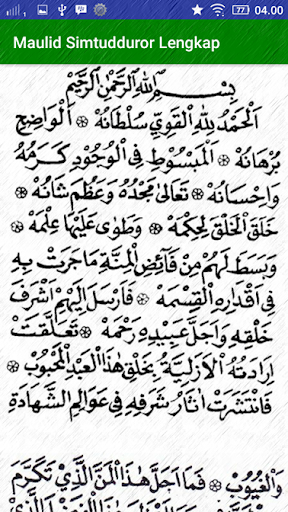 04.00
Maulid Simtudduror Lengkap
بِسْمِ اللهِ الرَّحْمٰنِ الرَّحِيْمِ
اَلْحَمْدُ لِلهِ الْقَوِيِّ سُلْطَانُهْ ۞ اَلْوَاضِحِ
بُرْهَانُهْ ۞ اَلْمَبْسُوْطِ فِي الْوُجُوْدِ كَرَمُهُ
وَاِحْسَانُهْ ۞ تَعَالَى مَجْدُهُ وَعَظُمَ شَانُهْ ۞
خَلَقَ الْخَلْقَ لِحِكْمَهْ ۞ وَطَوَى عَلَيْهَا عِلْمَهْ ۞
وَبَسَطَ لَهُمْ مِنْ فَائِضِ الْمِنَّةِ مَاجَرَتْ بِهِ
فِي اَقْدَارِهِ الْقِسْمَهْ ۞ فَاَرْسَلَ اِلَيْهِمْ اَشْرَفَ
خَلْقِهِ وَاَجَلَّ عَبِيْدِهِ رَحْمَهْ ۞ تَعَلَّقَتْ
اِرَادَتُهُ الْاَزَلِيَّةُ بِخَلْقِ هٰذَا الْعَبْدِ الْمَحْبُوْبِ ۞
فَانْتَشَرَتْ اٰثَارُ شَرَفِهِ فِي عَوَالِمِ الشَّهَادَةِ
وَالْغُيُوْبِ ۞ فَمَا اَجَلَّ هٰذَا الْمَنَّ الَّذِيْ تَكَرَّمَ